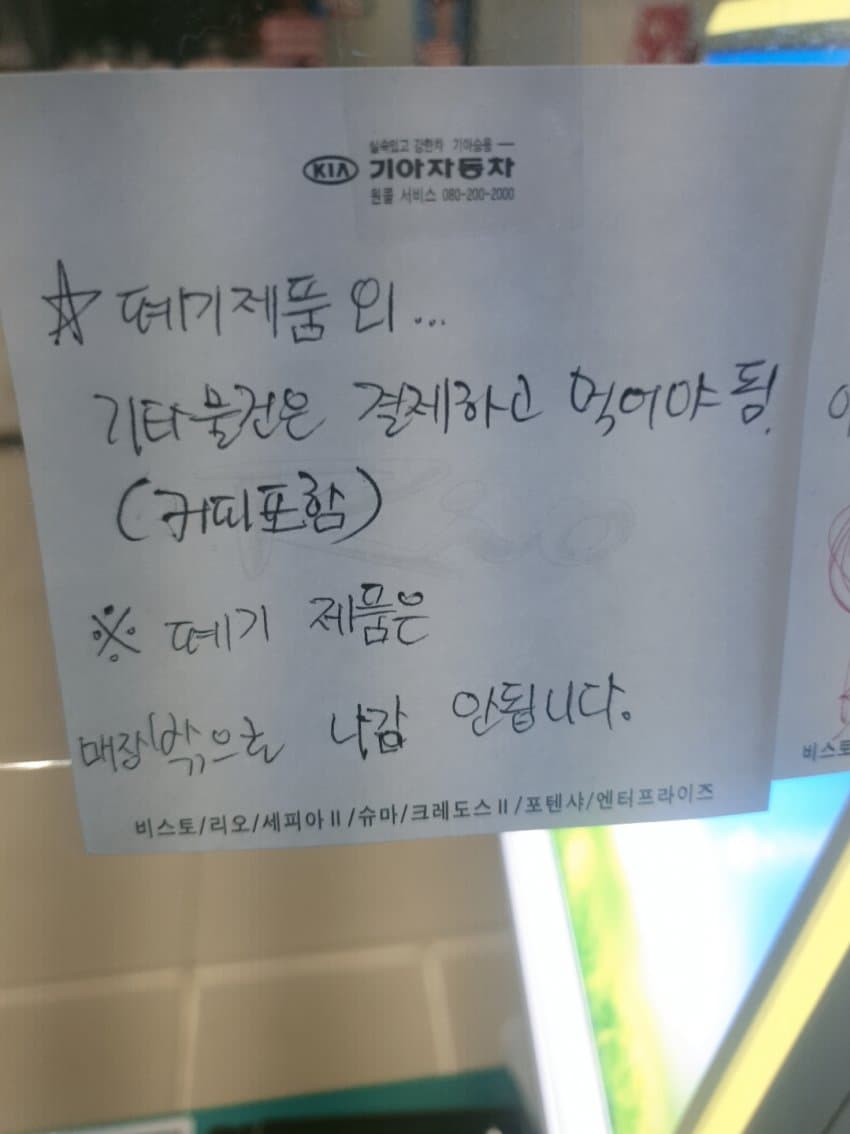 실속있고 강한차 기아승용
KIA 기아자동차
원콜 서비스 080-200-2000
☆ 폐기제품 외...
기타물건은 결제하고 먹어야 됨.
(커피포함)
※ 폐기 제품은
매장밖으로 나감 안됩니다.
비스토/리오/세피아II/슈마/크레도스II/포텐샤/엔터프라이즈
비스토